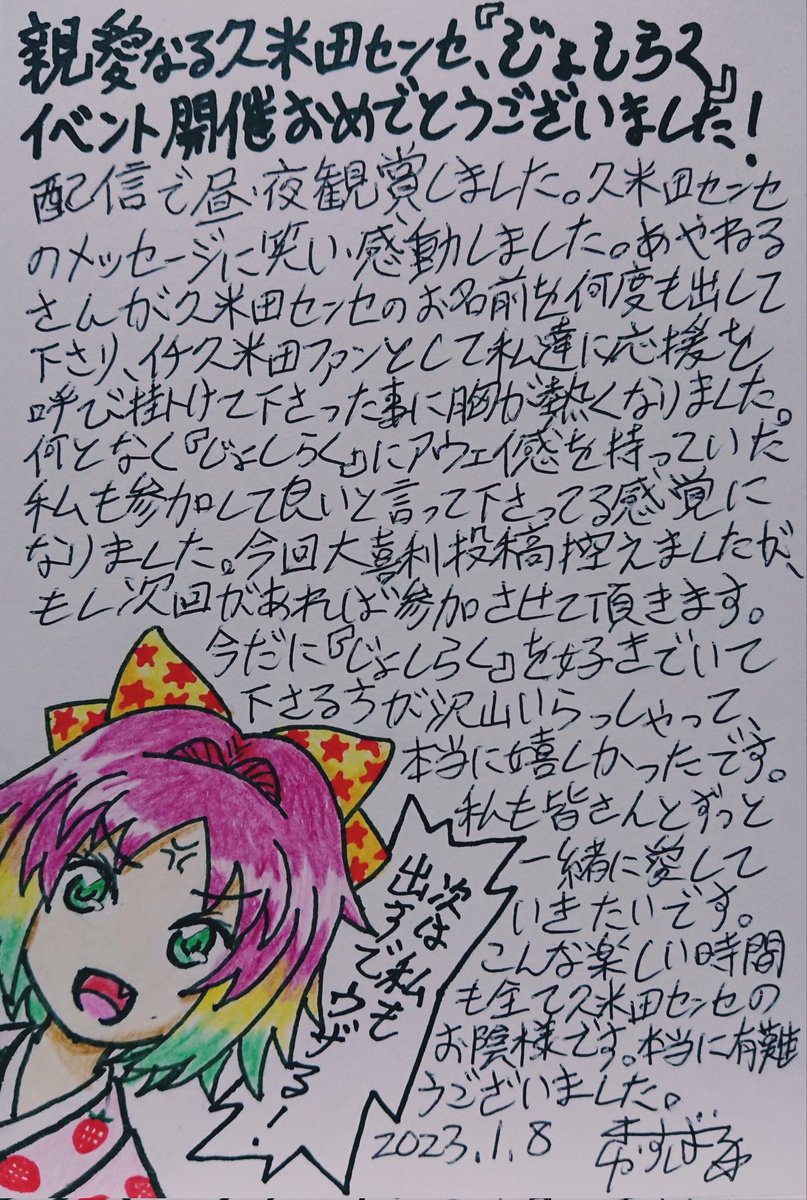 親愛なる久米田センセ、『じょしらく』
イベント開催おめでとうございました!
配信で昼・夜観賞しました。久米田センセ
のメッセージに笑い、感動しました。あやねる
さんが久米田センセのお名前を何度も出して
下さり、イチ久米田ファンとして私達に応援を
呼び掛けて下さった事に胸が熱くなりました。
何となく『じょしらく』にアウェイ感を持っていた
私も参加して良いと言って下さってる感覚に
なりました。今回大喜利投稿控えましたが、
もし次回があれば参加させて頂きます。
今だに『じょしらく』を好きでいて
下さる方が沢山いらっしゃって、
本当に嬉しかったです。
私も皆さんとずっと
一緒に愛して
いきたいです。
こんな楽しい時間
も全て久米田センセの
お陰様です。本当に有難
うございました。
2023.1.8
次は
出すで私も
ウザる!